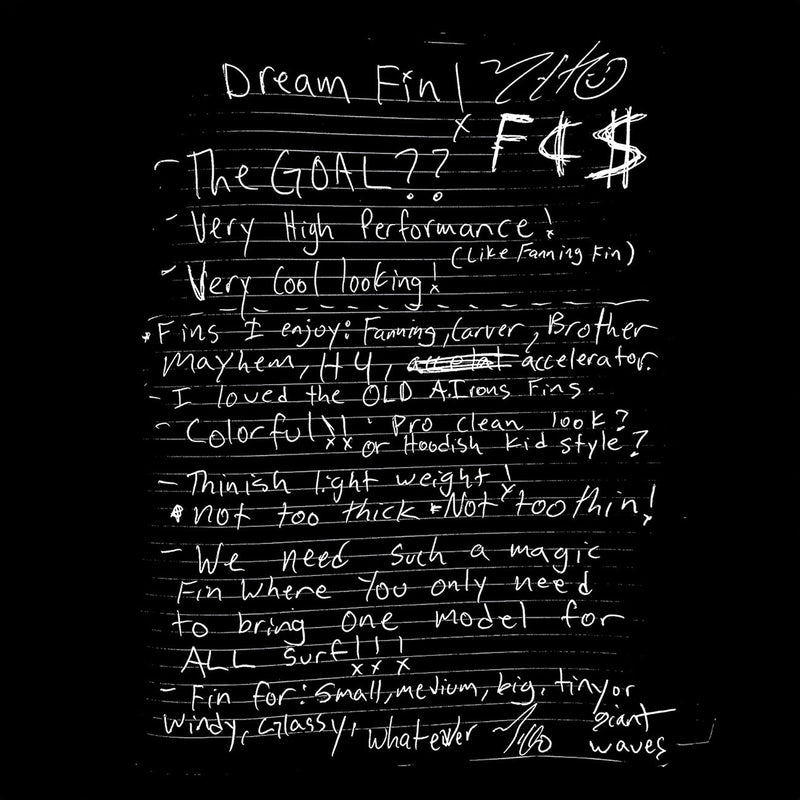 Dream Fin!
F¢$
- The GOAL??
- Very High Performance!
(Like Fanning Fin)
- Very Cool looking!
• Fins I enjoy: Fanning, Carver, Brother
Mayhem, H4, accelerator.
- I loved the OLD A.Irons Fins.
- Colorful!! : Pro clean look?
or Hoodish kid style?
- Thinish light weight!
• not too thick - Not too thin!
- We need such a magic
Fin where You only need
to bring one model for
ALL Surf!!!
- Fin for: Small, medium, big, tiny or
giant
windy, Glassy, whatever
waves